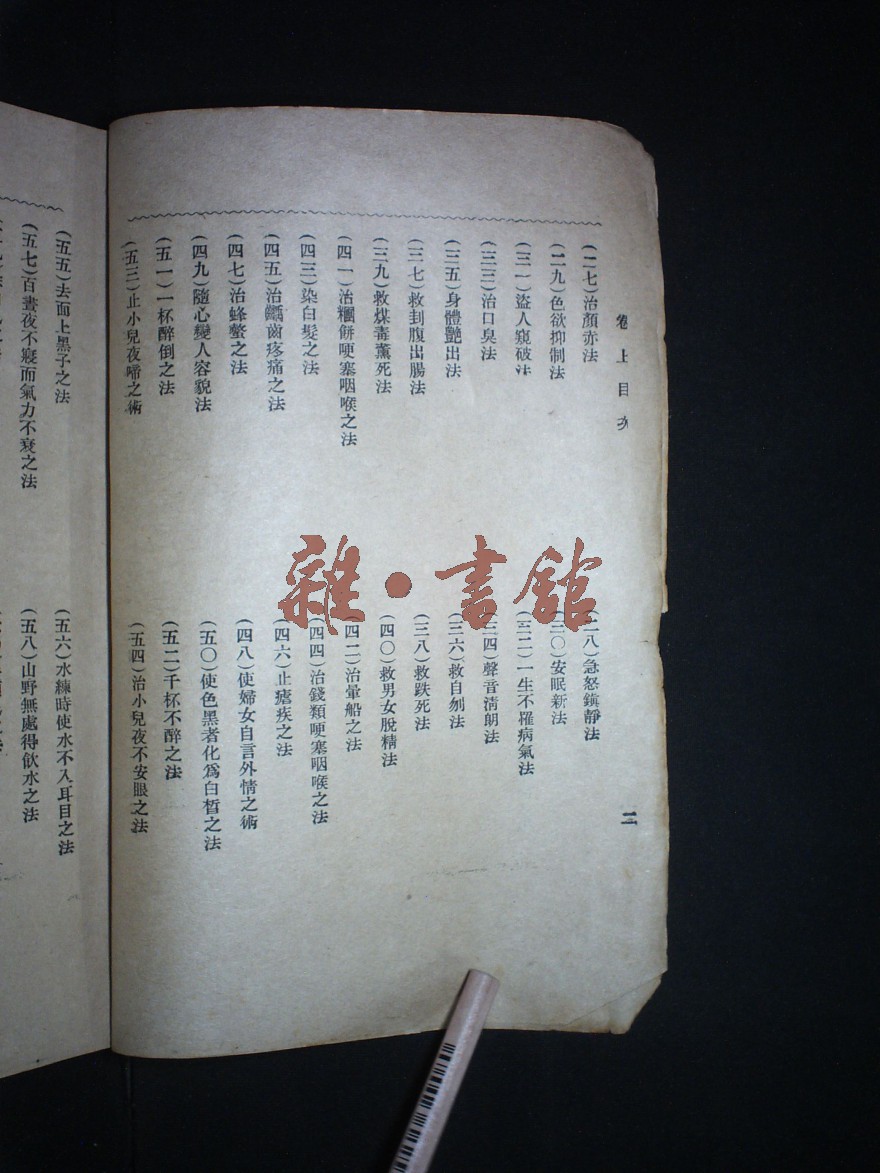 卷上目次
二
(二七)治顏赤法
(二八)急怒鎭靜法
(二九)色欲抑制法
(三〇)安眠新法
(三一)盜人窺破法
(三二)一生不罹病氣法
(三三)治口臭法
(三四)聲音淸朗法
(三五)身體艷出法
(三六)救自刎法
(三七)救刲腹出腸法
(三八)救跌死法
(三九)救煤毒薰死法
(四〇)救男女脫精法
(四一)治糰餅哽塞咽喉之法
(四二)治暈船之法
(四三)染白髮之法
(四四)治錢類哽塞咽喉之法
(四五)治齲齒疼痛之法
(四六)止瘧疾之法
(四七)治蜂螫之法
(四八)使婦女自言外情之術
(四九)隨心變人容貌法
(五〇)使色黑者化爲白皙之法
(五一)一杯醉倒之法
(五二)千杯不醉之法
(五三)止小兒夜啼之術
(五四)治小兒夜不安眠之法
(五五)去面上黑子之法
(五六)水練時使水不入耳目之法
(五七)百晝夜不寢而氣力不衰之法
(五八)山野無處得飲水之法
雜·書館